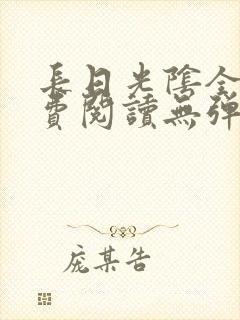 長日光陰全
費閱讀無彈
庞某告